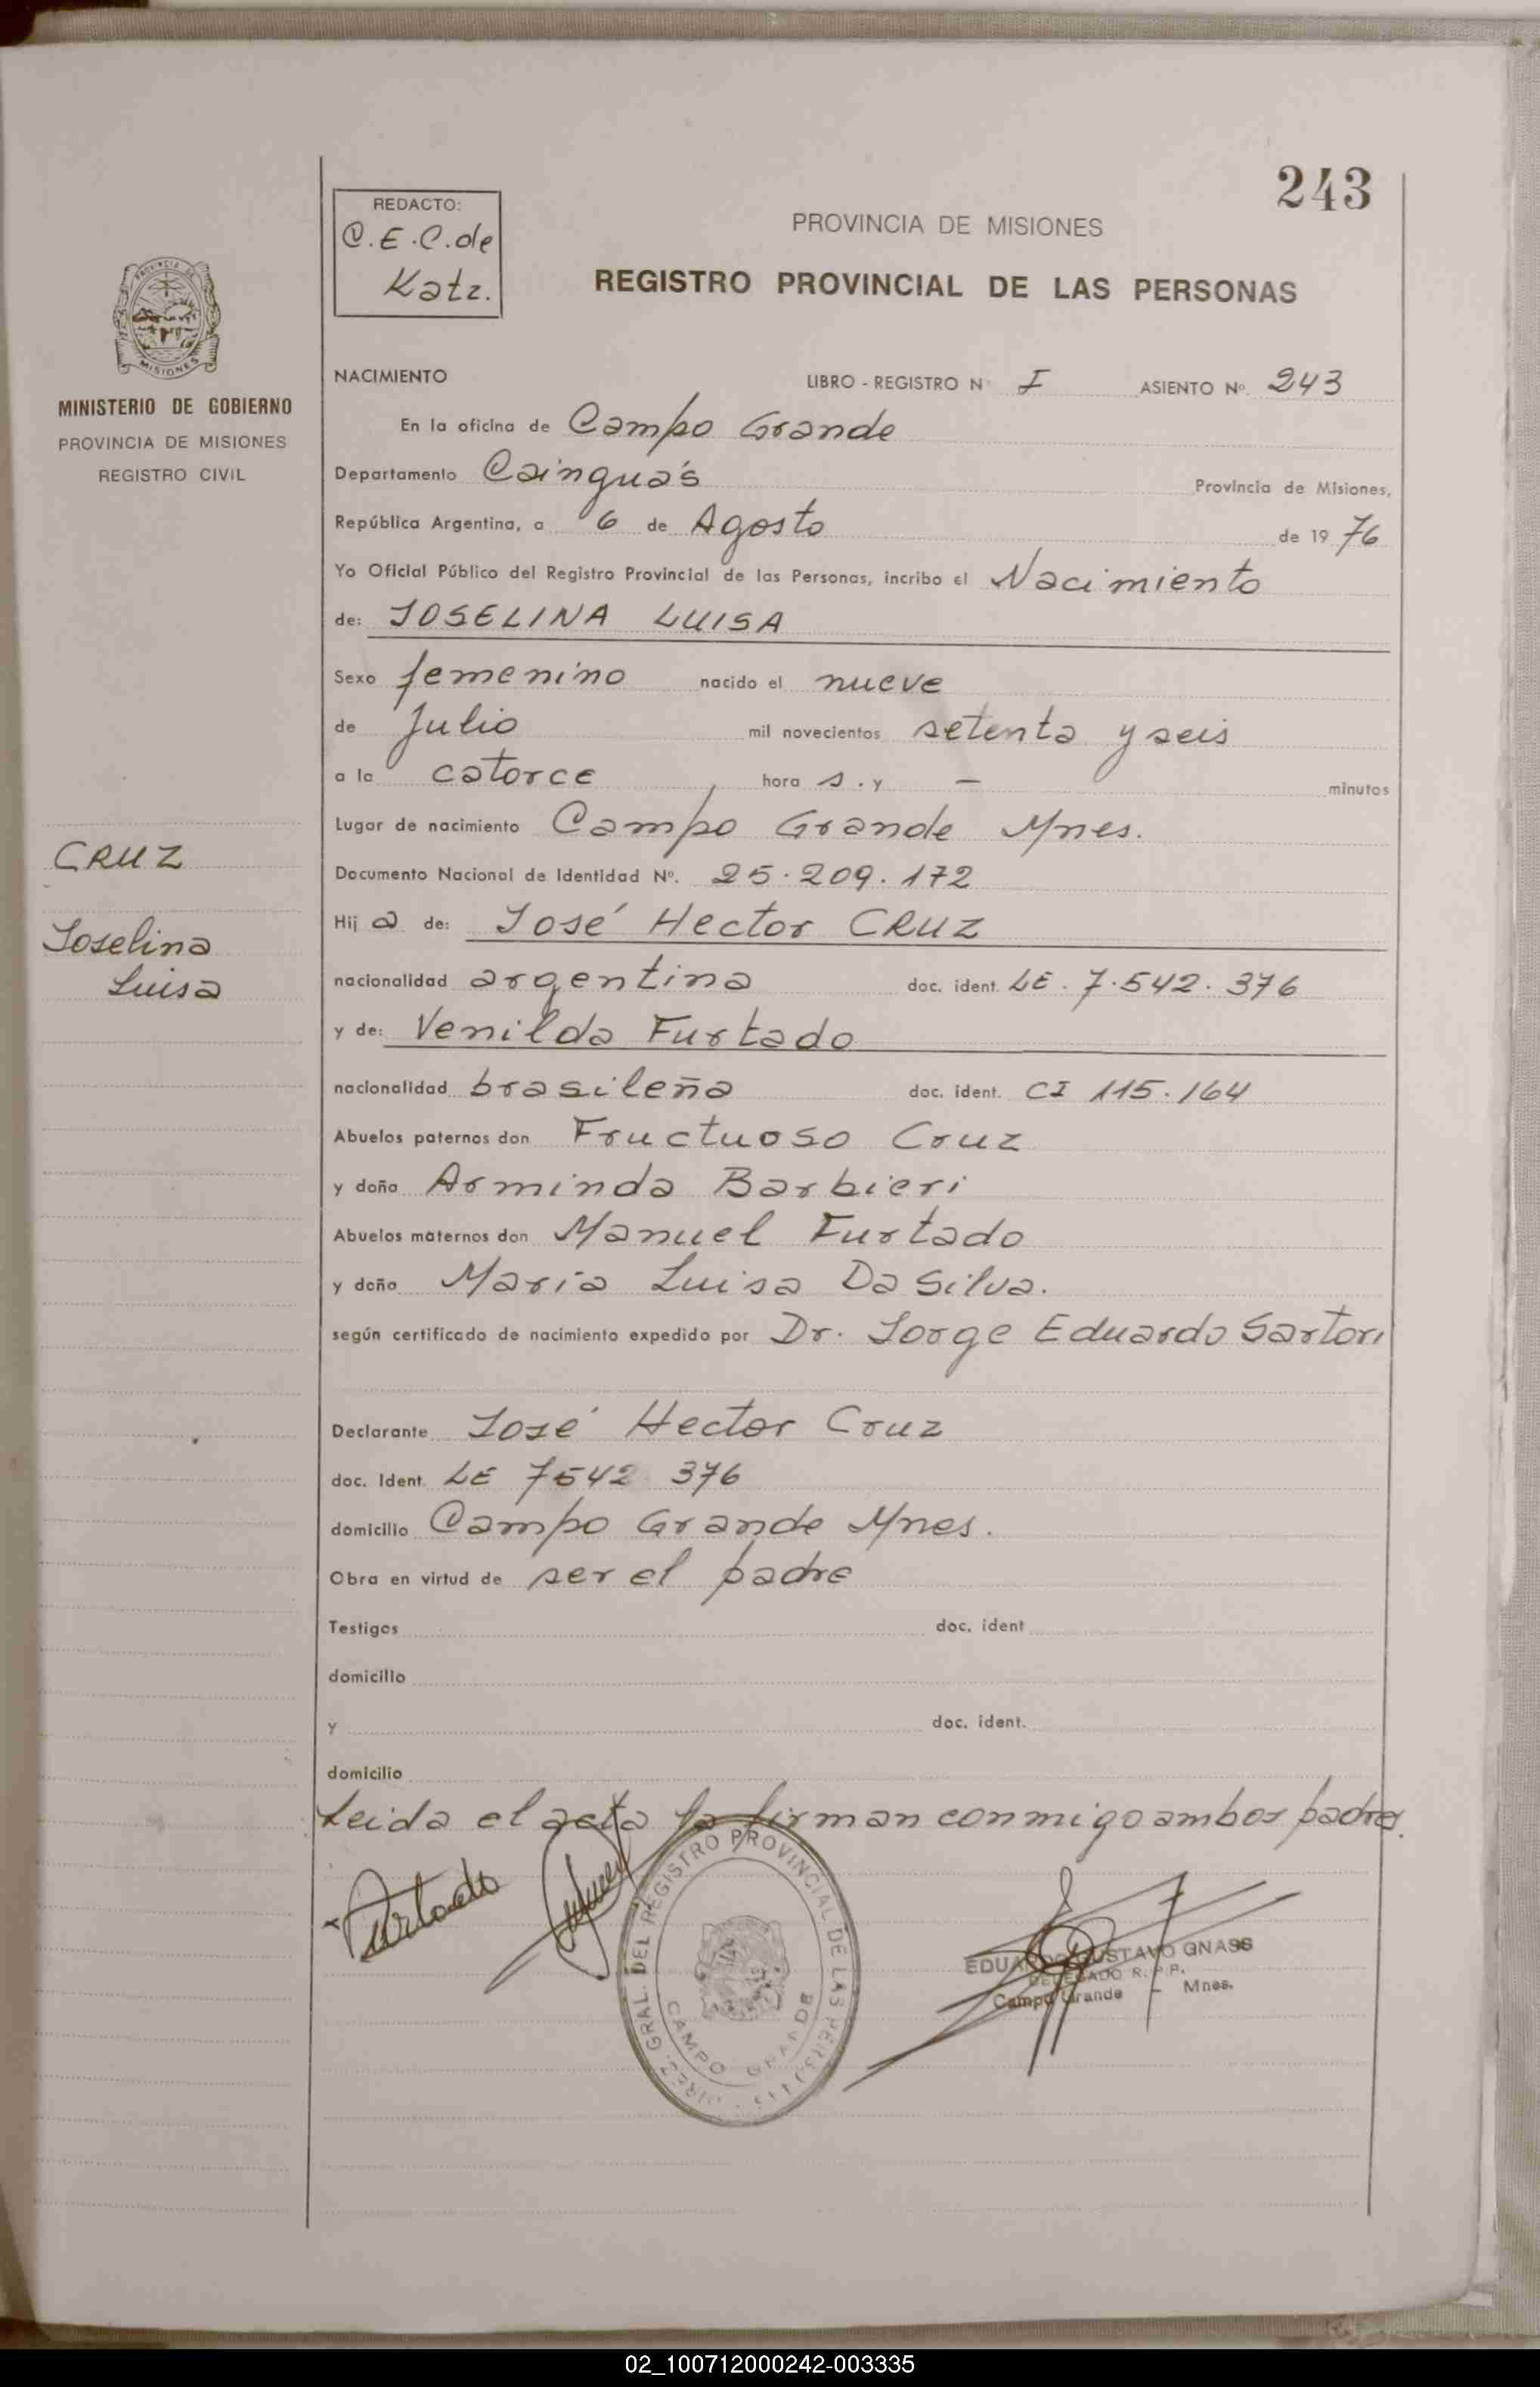 243
REDACTO:
C.E.C. de
Katz.
PROVINCIA DE MISIONES
REGISTRO PROVINCIAL DE LAS PERSONAS
MISIONES
MINISTERIO DE GOBIERNO
PROVINCIA DE MISIONES
REGISTRO CIVIL
NACIMIENTO LIBRO - REGISTRO N° I ASIENTO Nº. 243
En la oficina de Campo Grande
Departamento Cainguás Provincia de Misiones,
República Argentina, a 6 de Agosto de 19 76
Yo Oficial Público del Registro Provincial de las Personas, incribo el Nacimiento
de: JOSELINA LUISA
Sexo femenino nacido el nueve
de Julio mil novecientos setenta y seis
a la catorce hora s. y — minutos
Lugar de nacimiento Campo Grande Mnes.
CRUZ
Joselina
Luisa
Documento Nacional de Identidad Nº. 25.209.172
Hij a de: José Hector CRUZ
nacionalidad argentina doc. ident. LE. 7.542.376
y de: Venilda Furtado
nacionalidad brasileña doc. ident. CI 115.164
Abuelos paternos don Fructuoso Cruz
y doña Arminda Barbieri
Abuelos maternos don Manuel Furtado
y doña María Luisa Da Silva.
según certificado de nacimiento expedido por Dr. Jorge Eduardo Sartori
Declarante José Hector Cruz
doc. Ident. LE 7542 376
domicilio Campo Grande Mnes.
Obra en virtud de ser el padre
Testigos doc. ident
domicilio
y doc. ident.
domicilio
Leida el acta la firman conmigo ambos padres.
Furtado
DIREC. GRAL. DEL REGISTRO PROVINCIAL DE LAS PERSONAS
CAMPO GRANDE
EDUARDO GUSTAVO GNASS
DELEGADO R.P.P.
Campo Grande - Mnes.
02_100712000242-003335